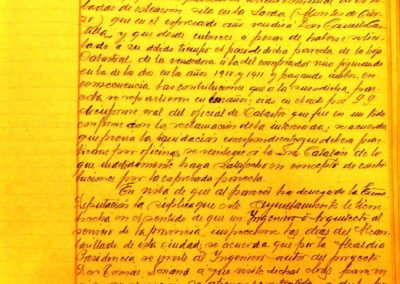 ladas de extensión sita en la Jarda (Montes de Cierzo)
que en el expresado año vendió a Don Candido
tilla y que desde entonces a pesar de haberse solici
tado a su debido tiempo el pase de dicha parcela de la hoja
Catastral de la vendedora a la del comprador vino figurando
en la de los dos en los años 1910 y 1911 y pagando ambos, en
consecuencia las contribuciones que a la susodicha par
cela se repartieron en
informe oral del oficial de Catastro que fue en un todo
conforme con la reclamación de la interesada; se acuerda
que previa la liquidación correspondiente que deberá prac
ticarse por oficinas se devuelva a la Sra Catalán de lo
que indebidamente haya satisfecho en concepto de contri
buciones por la expresada parcela.
En vista de que al parecer ha denegado la Excma
Diputación la súplica que este Ayuntamiento le tiene
hecha en el sentido de que un Ingeniero o Arquitecto al
servicio de la provincia, inspeccione las obras del Alcan
tarillado de esta ciudad, se acuerda que por la Alcaldía
Presidencia se invite al Ingeniero autor del proyecto
Don Tomás Soriano a que visite dichas obras para